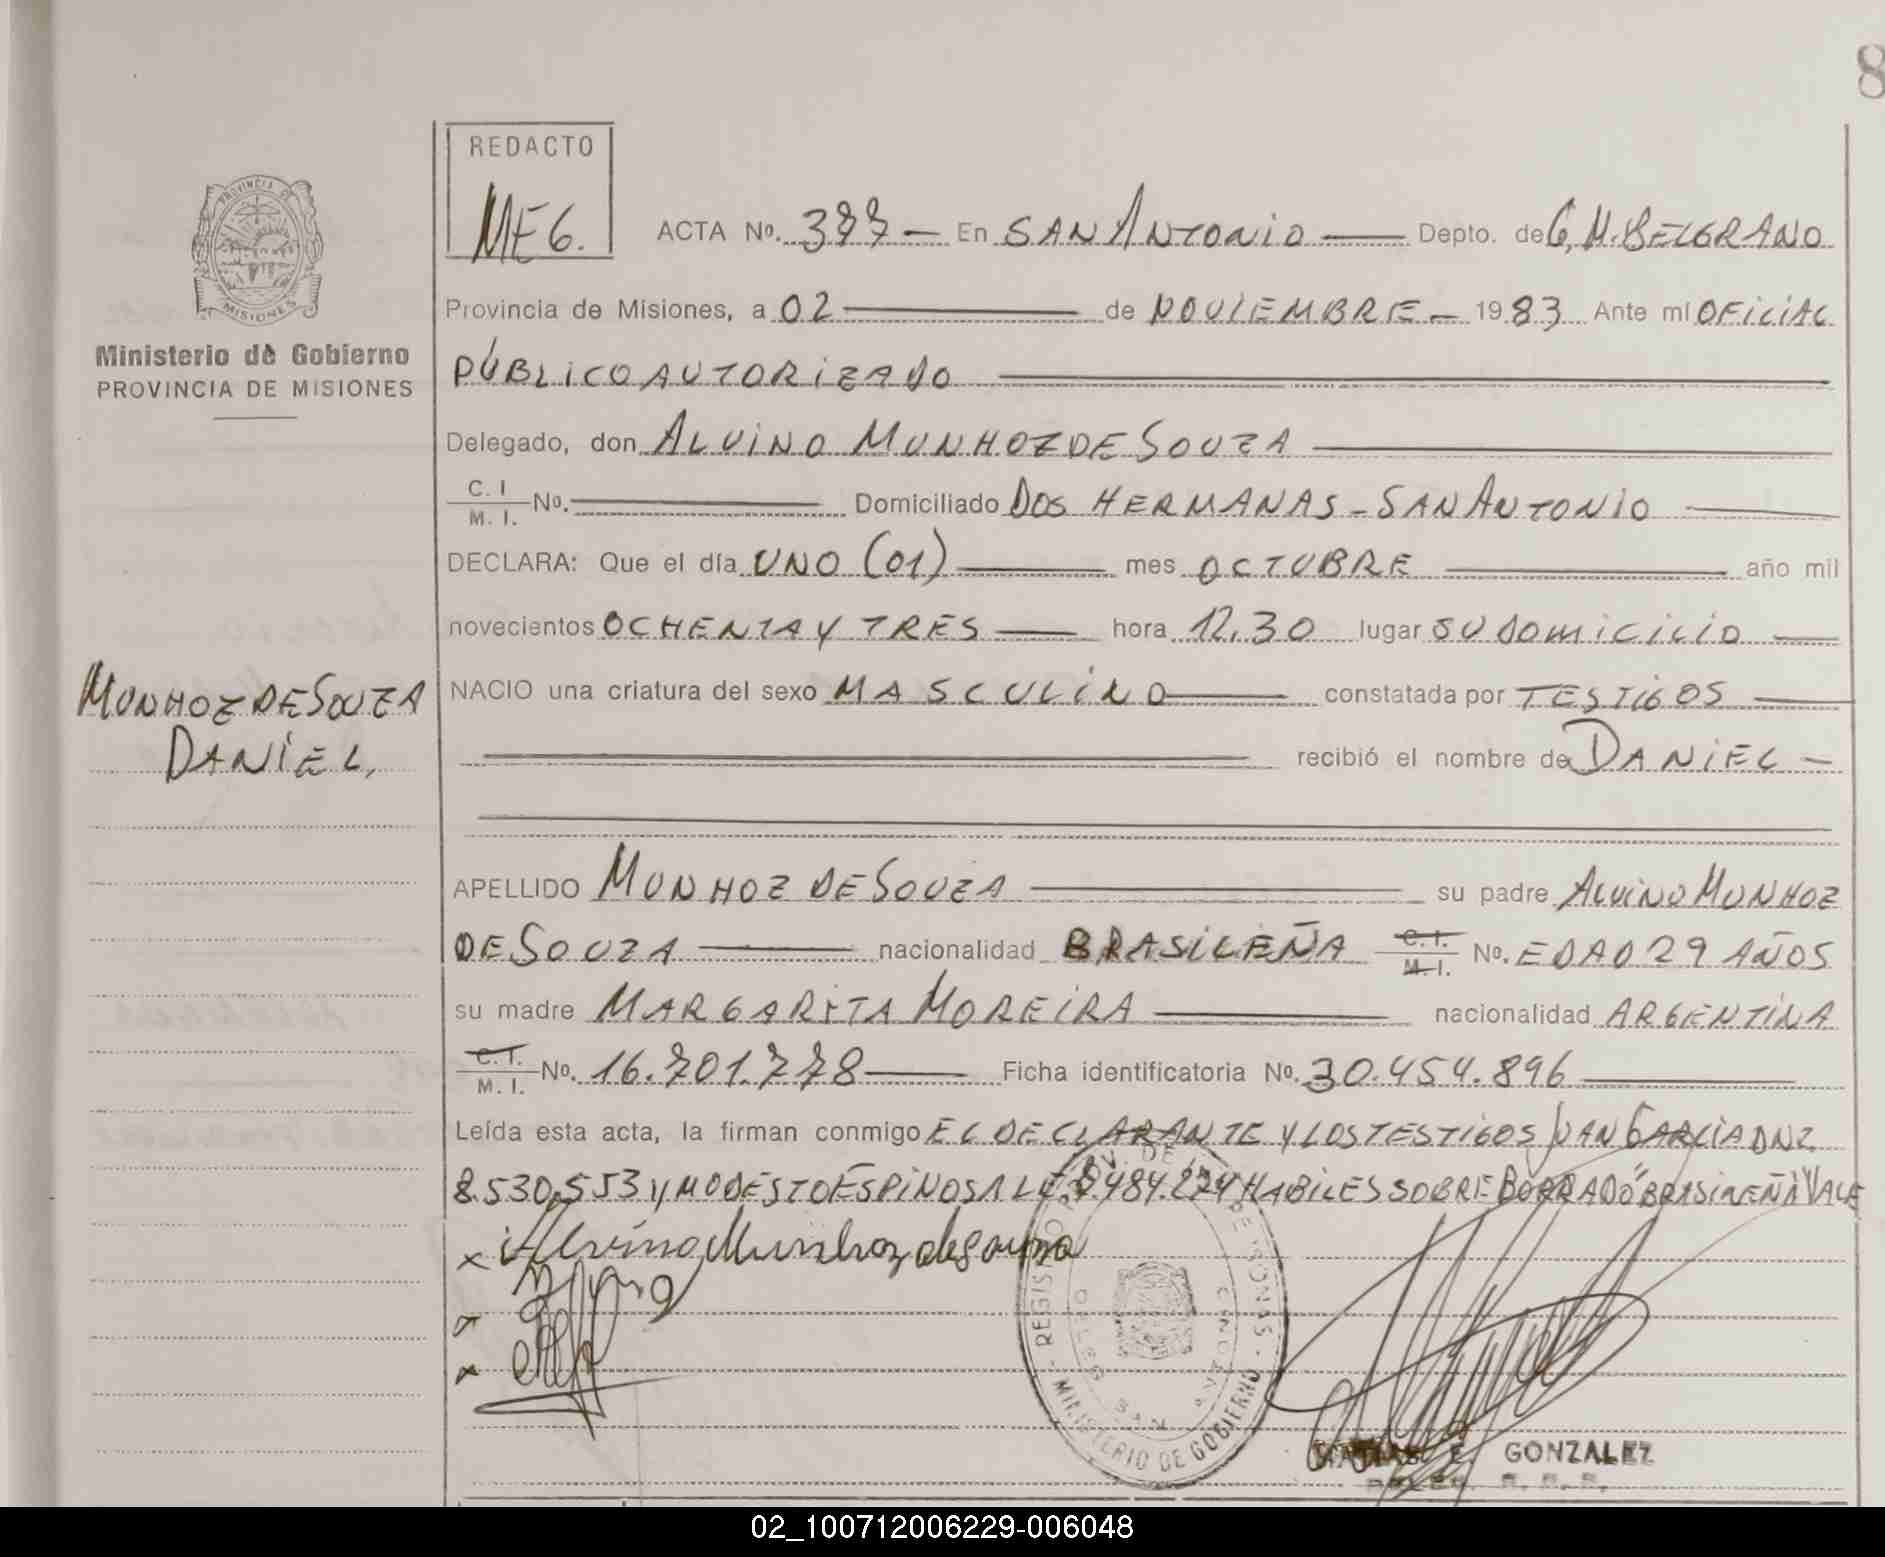 8
REDACTO
MEG.
PROVINCIA DE
MISIONES
Ministerio de Gobierno
PROVINCIA DE MISIONES
ACTA No. 377 — En SAN ANTONIO — Depto. de G, M. BELGRANO
Provincia de Misiones, a 02 — de NOVIEMBRE — 1983 Ante mí OFICIAL
PÚBLICO AUTORIZADO —
Delegado, don ALVINO MUNHOZ DE SOUZA —
C. I / M. I. No. — Domiciliado DOS HERMANAS - SAN ANTONIO —
DECLARA: Que el día UNO (01) — mes OCTUBRE — año mil
novecientos OCHENTA Y TRES — hora 12,30 lugar SU DOMICILIO —
MUNHOZ DE SOUZA
DANIEL,
NACIO una criatura del sexo MASCULINO — constatada por TESTIGOS —
— recibió el nombre de DANIEL —
APELLIDO MUNHOZ DE SOUZA — su padre ALVINO MUNHOZ
DE SOUZA — nacionalidad BRASILEÑA C. I. / M. I. No. EDAD 29 AÑOS
su madre MARGARITA MOREIRA — nacionalidad ARGENTINA
C. I. / M. I. No. 16.701.778 — Ficha identificatoria No. 30.454.896 —
Leída esta acta, la firman conmigo EL DECLARANTE Y LOS TESTIGOS JUAN GARCIA DNI.
8.530.553 Y MODESTO ESPINOSA L.E. 8.484.224 HABILES SOBRE BORRADO "BRASILEÑA" VALE
x Alvino Munhoz de souza
x
x
REGISTRO PROV. DE PERSONAS
SAN ANTONIO
MINISTERIO DE GOBIERNO
E. GONZALEZ
02_100712006229-006048